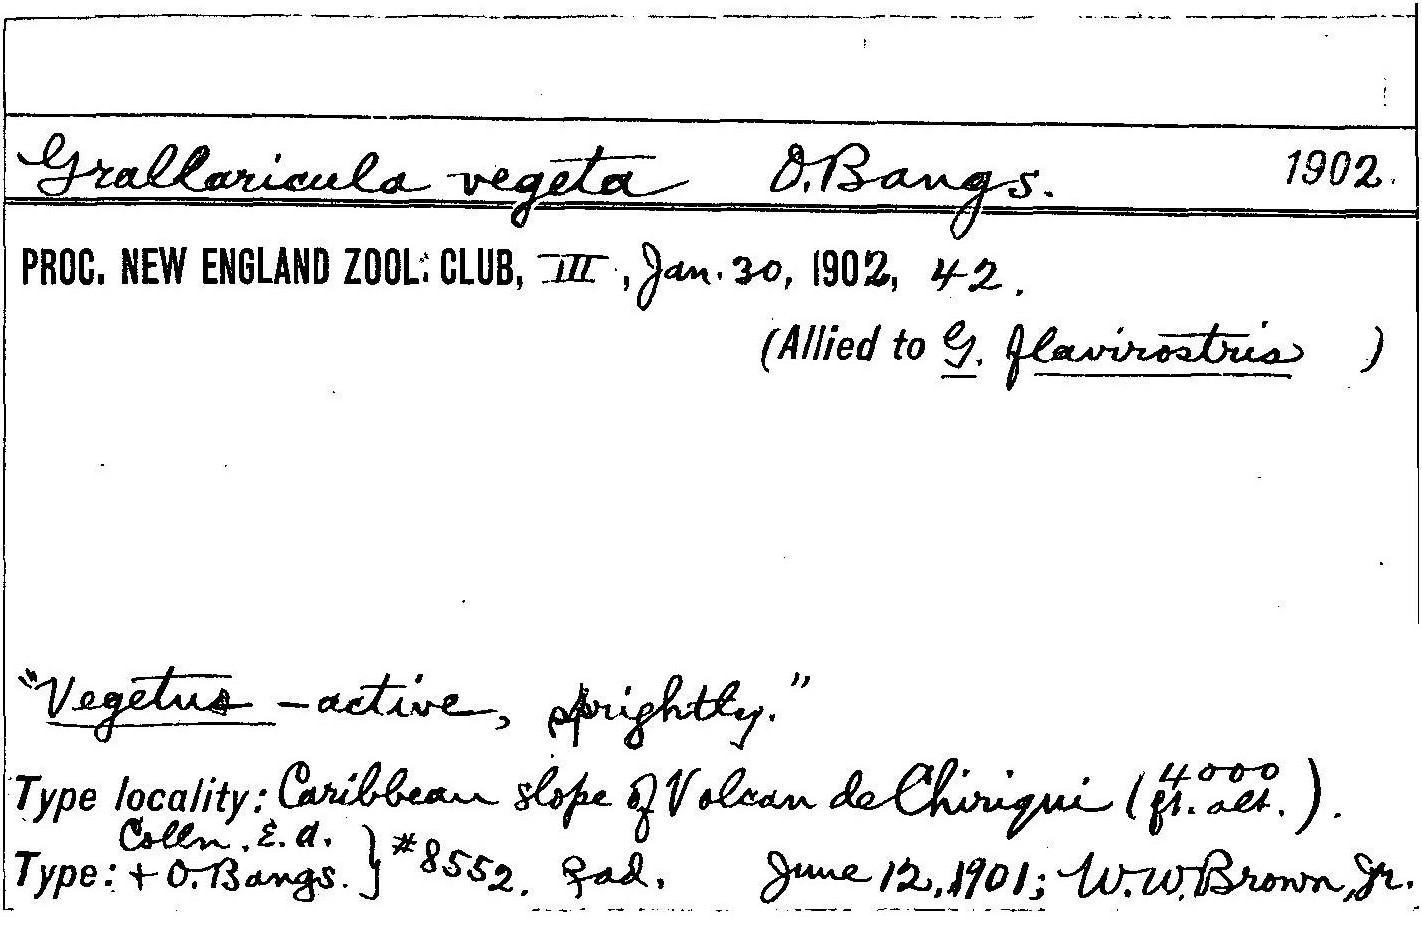 Grallaricula vegeta O. Bangs. 1902.
PROC. NEW ENGLAND ZOOL. CLUB, III, Jan. 30, 1902, 42.
(Allied to G. flavirostris )
"Vegetus – active, sprightly."
Type locality: Caribbean slope of Volcan de Chiriqui (4000 ft. alt.).
Colln. E. A.
Type: + O. Bangs. } #8552. ♀ ad. June 12, 1901; W. W. Brown, Jr.